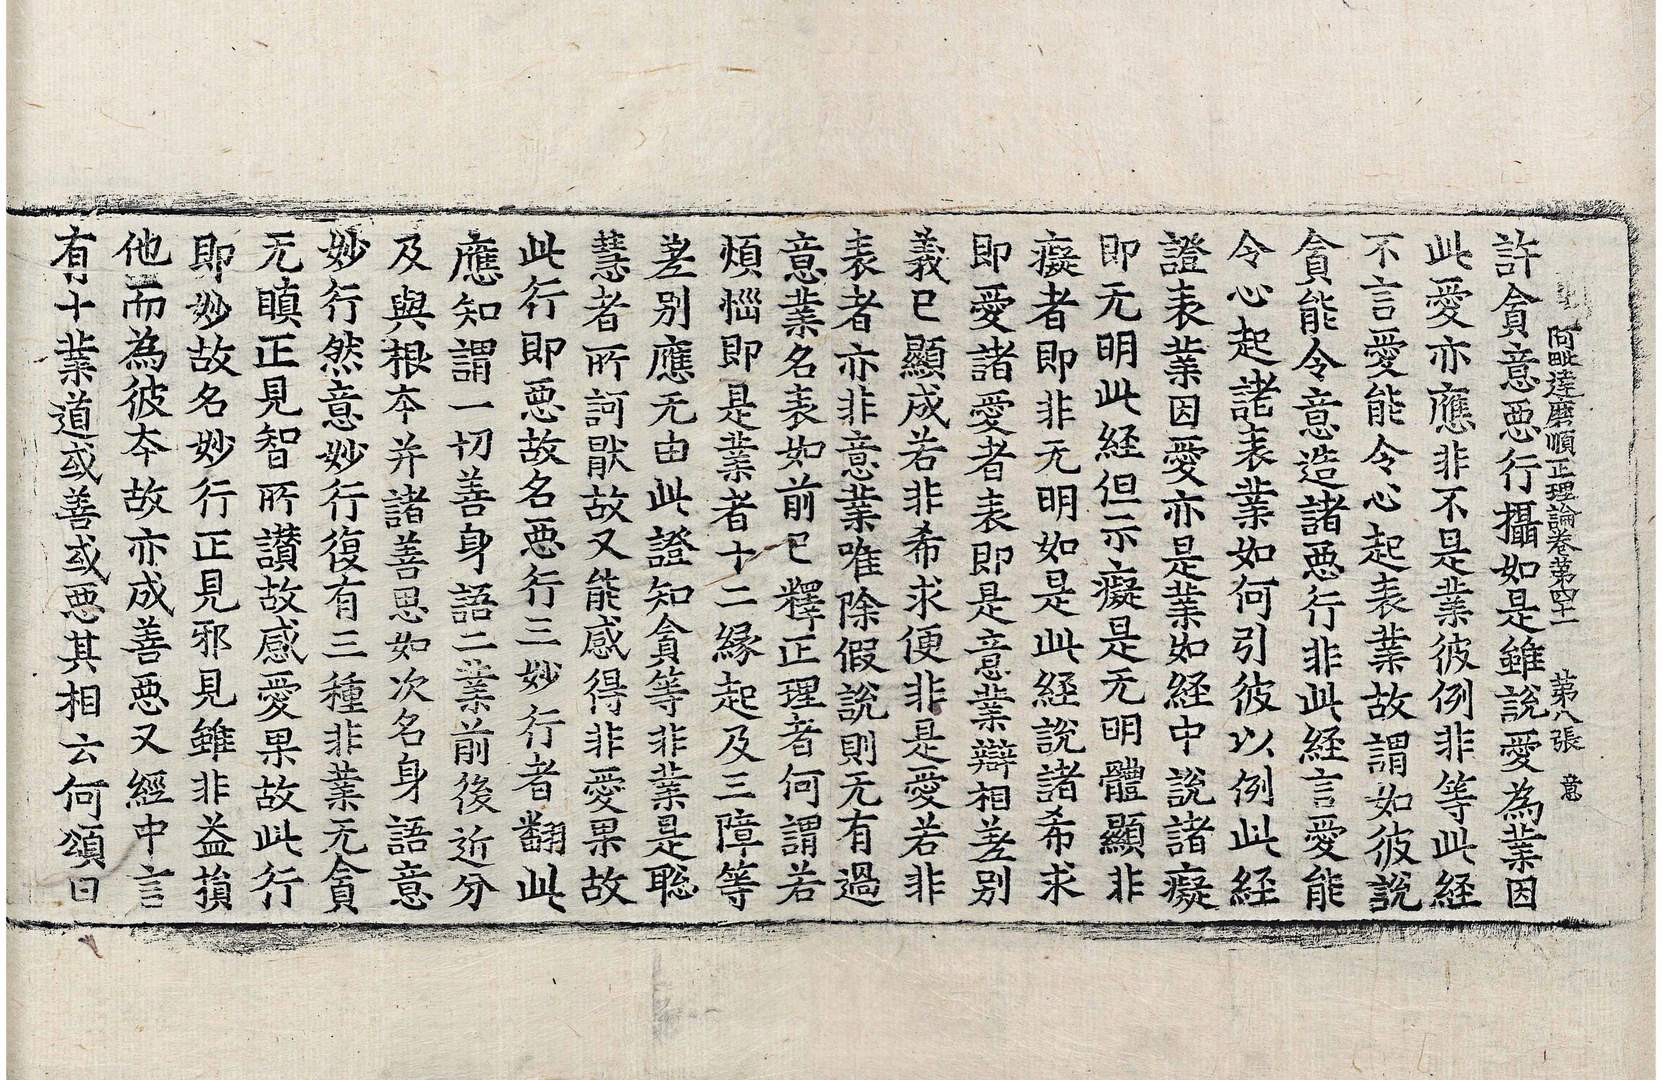 阿毗達磨順正理論卷第四十一 第八張 意
許貪意惡行攝如是雖說愛為業因
此愛亦應非不是業彼例非等此經
不言愛能令心起表業故謂如彼說
貪能令意造諸惡行非此經言愛能
令心起諸表業如何引彼以例此經
證表業因愛亦是業如經中說諸癡
即无明此經但示癡是无明體顯非
癡者即非无明如是此經說諸希求
即愛諸愛者表即是意業辯相差別
義已顯成若非希求便非是愛若非
表者亦非意業唯除假說則无有過
意業名表如前已釋正理者何謂若
煩惱即是業者十二緣起及三障等
差別應无由此證知貪等非業是聡
慧者所訶猒故又能感得非愛果故
此行即惡故名惡行三妙行者翻此
應知謂一切善身語二業前後近分
及與根本并諸善思如次名身語意
妙行然意妙行復有三種非業无貪
无瞋正見智所讚故感愛果故此行
即妙故名妙行正見邪見雖非益損
他而為彼本故亦成善惡又經中言
有十業道或善或惡其相云何頌曰